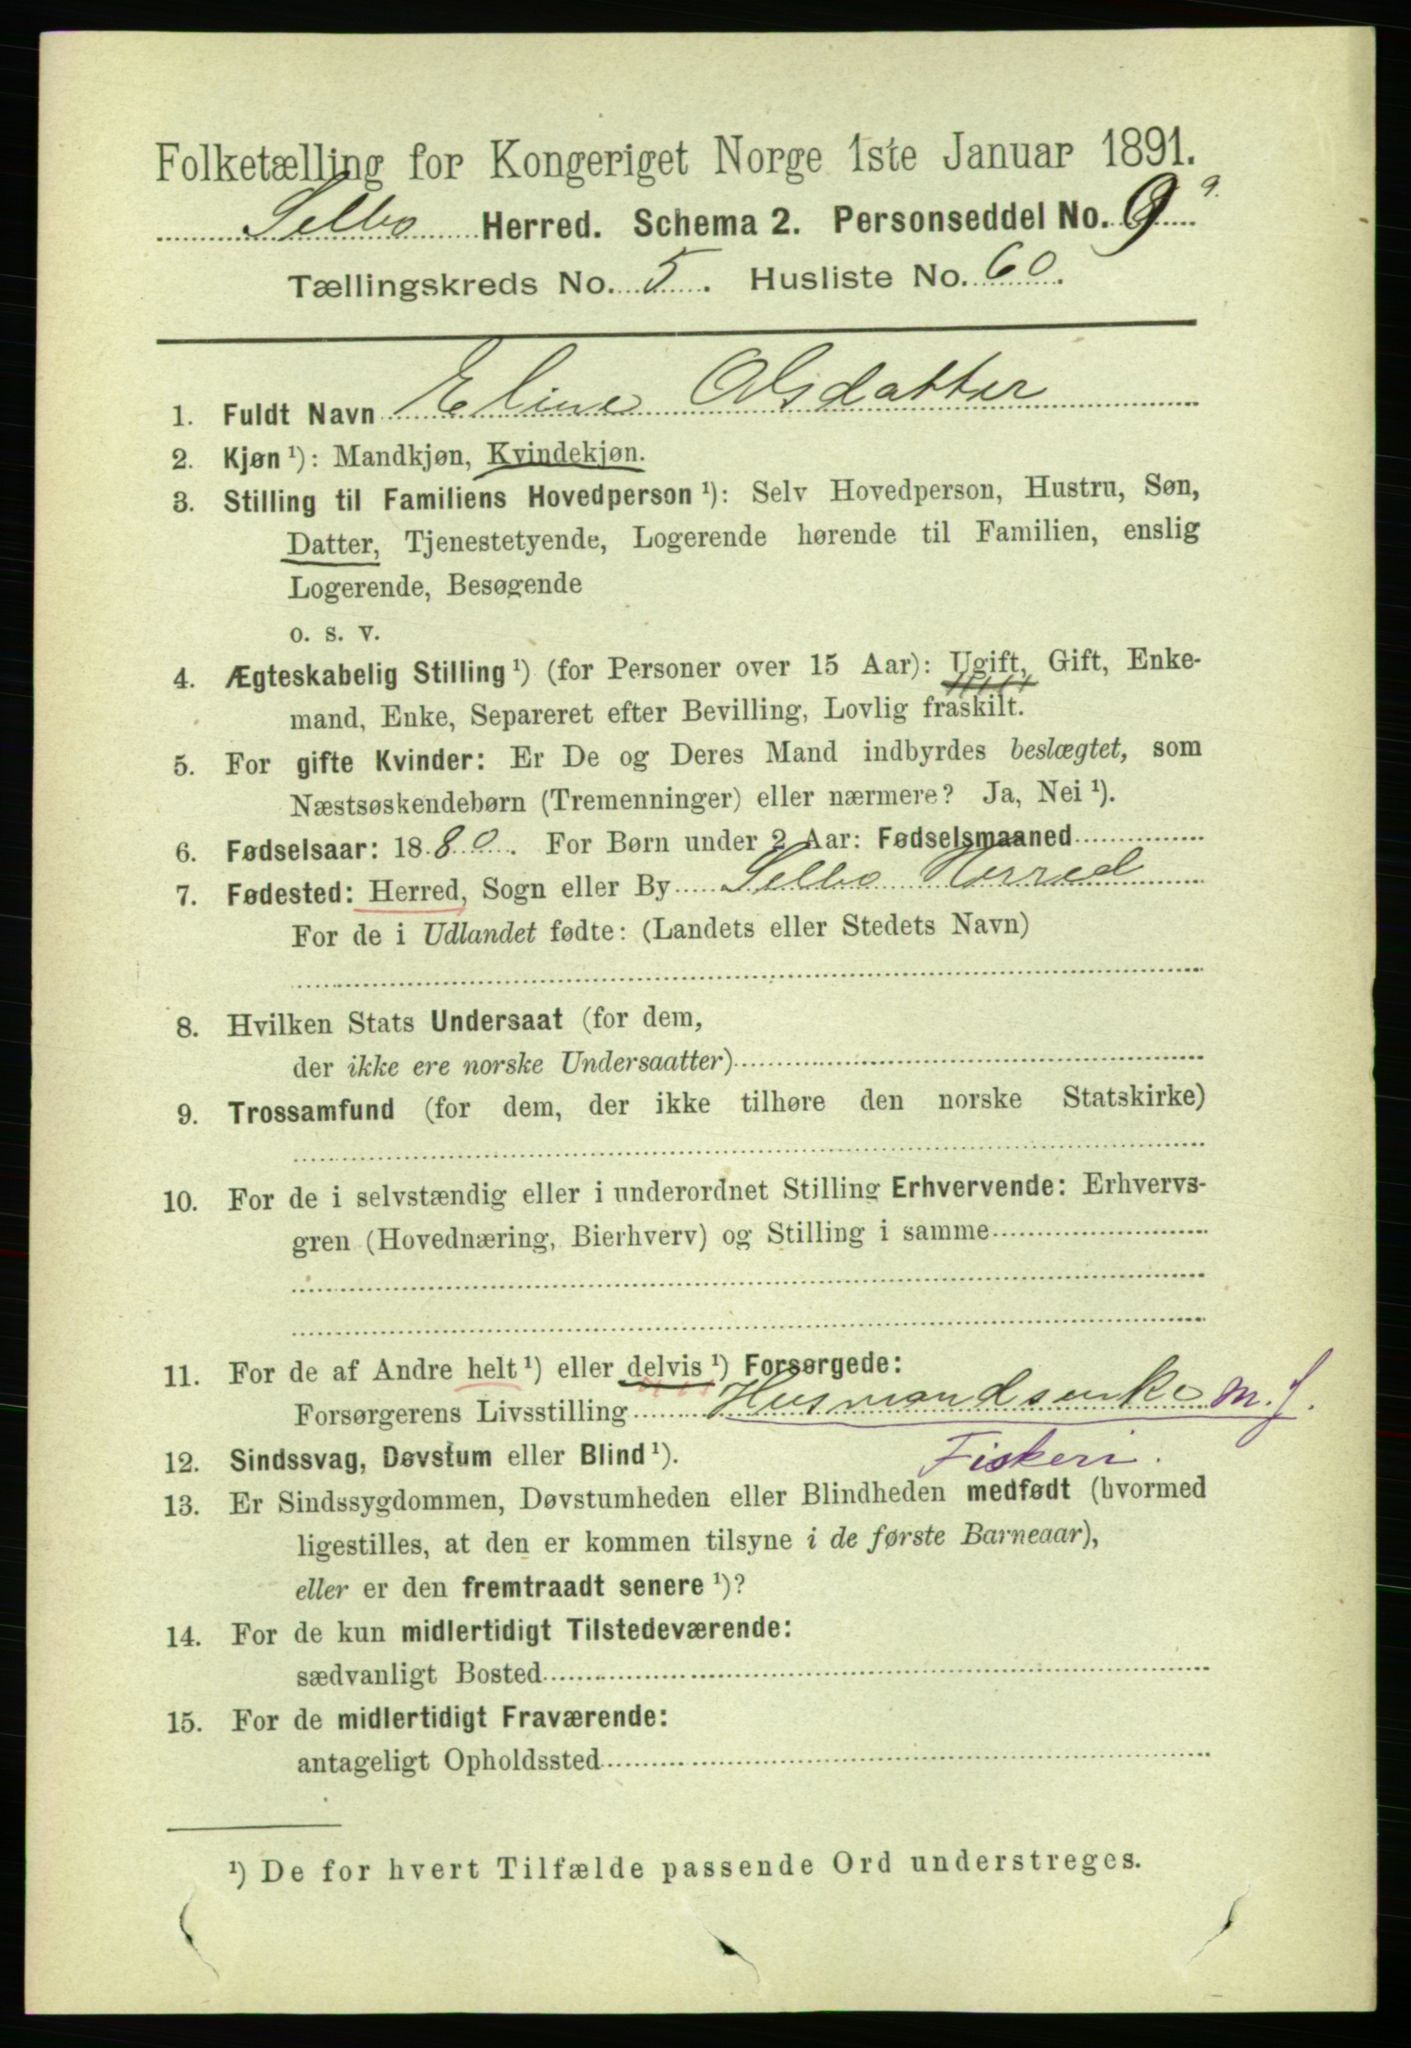 Folketælling for Kongeriget Norge 1ste Januar 1891.
Selbo Herred. Schema 2. Personseddel No. 9 9.
Tællingskreds No. 5. Husliste No. 60.
1. Fuldt Navn Eline Olsdatter
2. Kjøn ¹): Mandkjøn, Kvindekjøn.
3. Stilling til Familiens Hovedperson ¹): Selv Hovedperson, Hustru, Søn,
Datter, Tjenestetyende, Logerende hørende til Familien, enslig
Logerende, Besøgende
o. s. v.
4. Ægteskabelig Stilling ¹) (for Personer over 15 Aar): Ugift, Gift, Enke-
mand, Enke, Separeret efter Bevilling, Lovlig fraskilt.
5. For gifte Kvinder: Er De og Deres Mand indbyrdes beslægtet, som
Næstsøskendebørn (Tremenninger) eller nærmere? Ja, Nei ¹).
6. Fødselsaar: 1880. For Børn under 2 Aar: Fødselsmaaned
7. Fødested: Herred, Sogn eller By Selbo Herred
For de i Udlandet fødte: (Landets eller Stedets Navn)
8. Hvilken Stats Undersaat (for dem,
der ikke ere norske Undersaatter)
9. Trossamfund (for dem, der ikke tilhøre den norske Statskirke)
10. For de i selvstændig eller i underordnet Stilling Erhvervende: Erhvervs-
gren (Hovednæring, Bierhverv) og Stilling i samme
11. For de af Andre helt ¹) eller delvis ¹) Forsørgede:
Forsørgerens Livsstilling Husmandsenke m. j.
Fiskeri.
12. Sindssvag, Døvstum eller Blind ¹).
13. Er Sindssygdommen, Døvstumheden eller Blindheden medfødt (hvormed
ligestilles, at den er kommen tilsyne i de første Barneaar),
eller er den fremtraadt senere ¹)?
14. For de kun midlertidigt Tilstedeværende:
sædvanligt Bosted
15. For de midlertidigt Fraværende:
antageligt Opholdssted
¹) De for hvert Tilfælde passende Ord understreges.